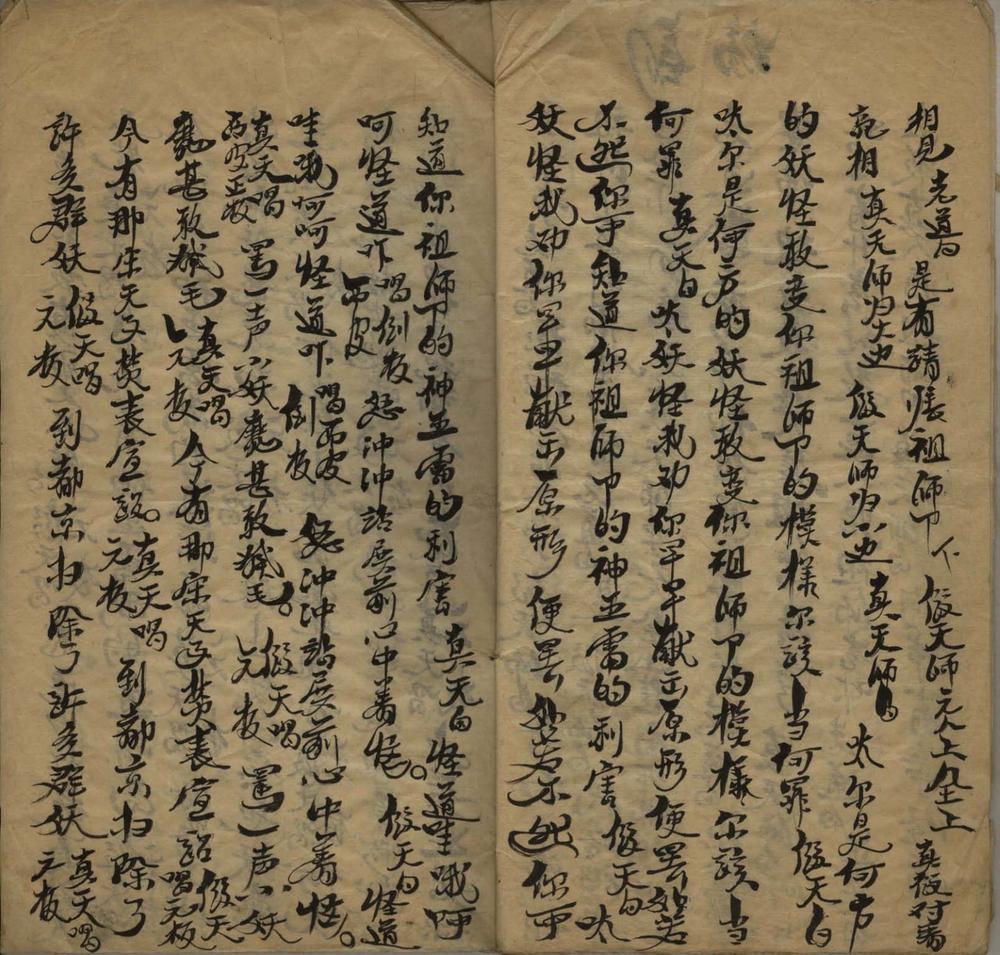 相見 老道白 是有請張祖師卩 下 假天師元人上仝上 真假对看
亮相 真天師为大边 假天師为小边 真天師白 呔尔是何方
的妖怪敢变你祖師卩的模樣尔該当何罪 假天白
呔尔是何方的妖怪敢变你祖師卩的模樣尔該当
何罪 真天白 呔妖怪我劝你早早献出原形便罢如若
不然你可知道你祖師卩的神五雷的利害 假天白 呔
妖怪我劝你早早献出原形便罢如若不然你可
知道你祖師卩的神五雷的利害 真天白 怪道哇哦呀
呵怪道吖 唱倒板 西皮 怒冲冲站展前心中着怪。 假天白 怪道
哇哦呵呵怪道吖 唱西皮 倒板 怒冲冲站展前心中着怪。
真天唱 西皮正板 罵一声小妖魔甚敢猴毛。 假天唱 元板 罵一声小妖
魔甚敢猴毛 真天唱 元板 今有那宋天子焚表宣詔 假天 唱元板
今有那宋天子焚表宣詔。 真天唱 元板 到都京扫除了
許多群妖 假天唱 元板 到都京扫除了許多群妖 真天唱 元板